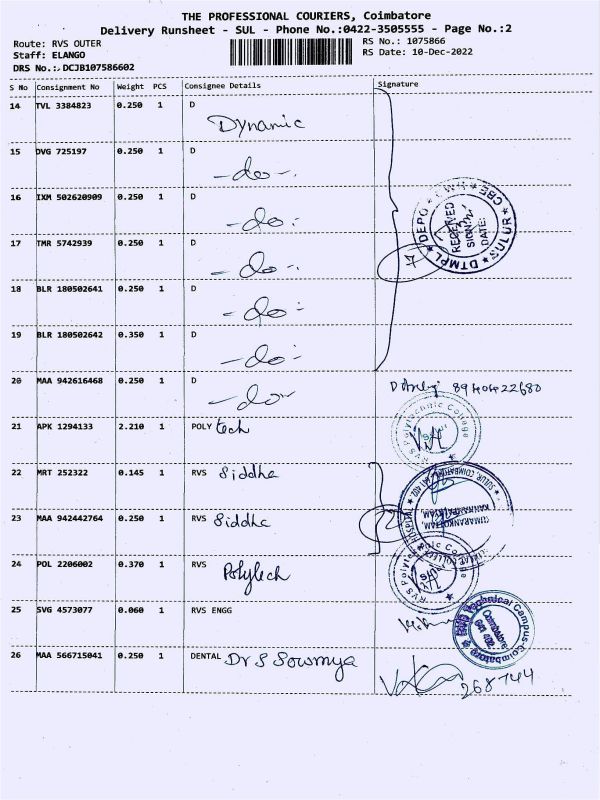 THE PROFESSIONAL COURIERS, Coimbatore
Delivery Runsheet - SUL - Phone No.:0422-3505555 - Page No.:2
Route: RVS OUTER
RS No.: 1075866
Staff: ELANGO
RS Date: 10-Dec-2022
DRS No.:.DCJB107586602
S No Consignment No Weight PCS Consignee Details Signature
14 TVL 3384823 0.250 1 D
Dynamic
15 DVG 725197 0.250 1 D
-do-.
16 IXM 502620909 0.250 1 D
-do-
17 TMR 5742939 0.250 1 D
-do-.
18 BLR 180502641 0.250 1 D
-do-
19 BLR 180502642 0.350 1 D
-do-
DTMPL ★ DEPO ★ CWH ★ CBE ★ SULUR ★
RECEIVED
SIGN:
DATE:
20 MAA 942616468 0.250 1 D
-do-
21 APK 1294133 2.210 1 POLY tech
RVS Polytechnic College
22 MRT 252322 0.145 1 RVS Siddha
23 MAA 942442764 0.250 1 RVS Siddha
KUMARANKOTTAM,
KANNAMPALAYAM,
24 POL 2206002 0.370 1 RVS
Polytech
RVS Polytechnic College
25 SVG 4573077 0.060 1 RVS ENGG
Technical Campus-Coimbatore
Coimbatore
641 402.
26 MAA 566715041 0.250 1 DENTAL Dr S Sowmya
268744